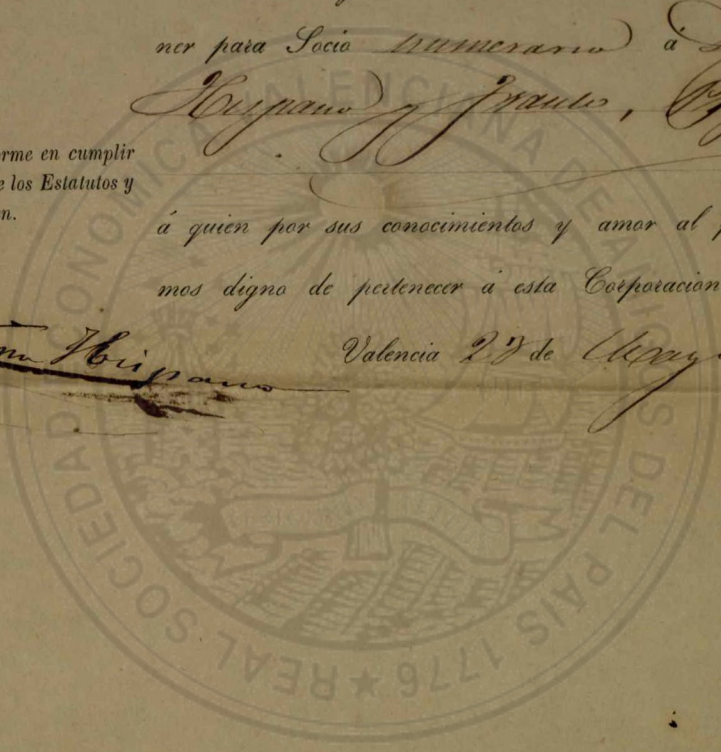 ner para Socio numerario á
Hispano y
rme en cumplir
e los Estatutos y
n.
á quien por sus conocimientos y amor al p
mos digno de pertenecer á esta Corporacion
Hispano
Valencia 27 de May
REAL SOCIEDAD ECONOMICA VALENCIANA DE AMIGOS DEL PAIS 1776